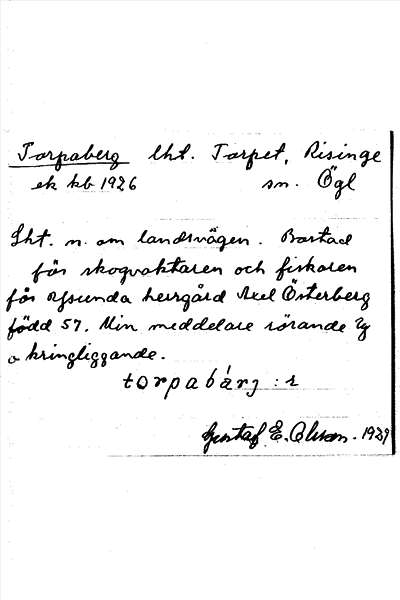 Torpaberg lht. Torpet, Risinge
ek kb 1926 sn. Ögl
Lht. n. om landsvägen. Bostad
för skogvaktaren och fiskaren
för Ysunda herrgård Axel Österberg
född 57. Min meddelare rörande
o kringliggande.
torpabárj : r
Gustaf E. Olsson. 1929